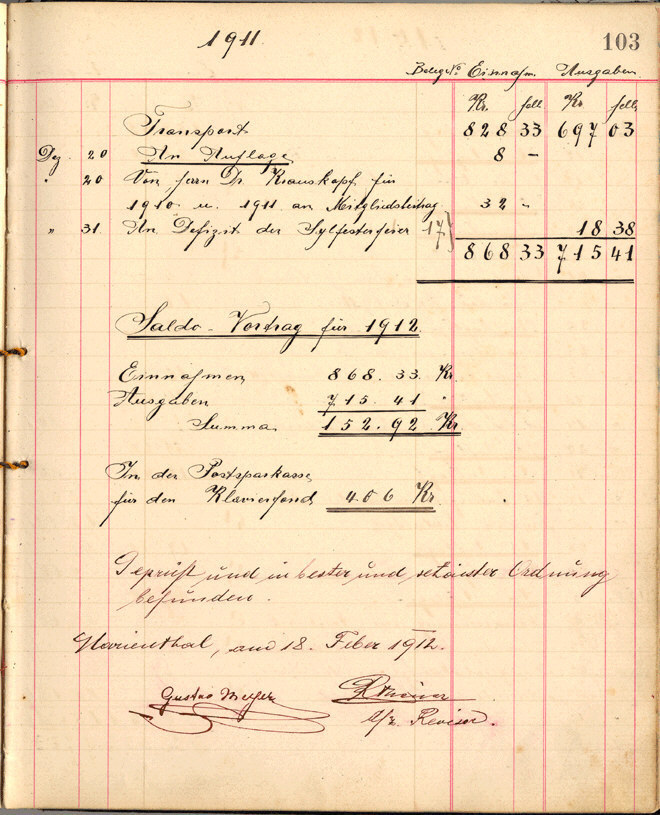 1911.
103
Beleg No. Einnahm. Ausgaben
Kr. hell Kr. hell
Transport 828 33 697 03
Dez. 20 An Auflage 8 –
" 20 Von Herrn Dr. Krauskopf für
1910 u. 1911 an Mitgliedsbeitrag 32 –
" 31. An Defizit der Sylfesterfeier 17 18 38
868 33 715 41
Saldo-Vortrag für 1912.
Einnahmen 868. 33. Kr.
Ausgaben 715. 41 "
Summa 152. 92. Kr.
In der Postsparkasse
für den Klavierfond 406 Kr
Geprüft und in bester und schönster Ordnung
befunden.
Marienthal, am 18. Feber 1912.
Gustav Meyer
d/z. Revisor.